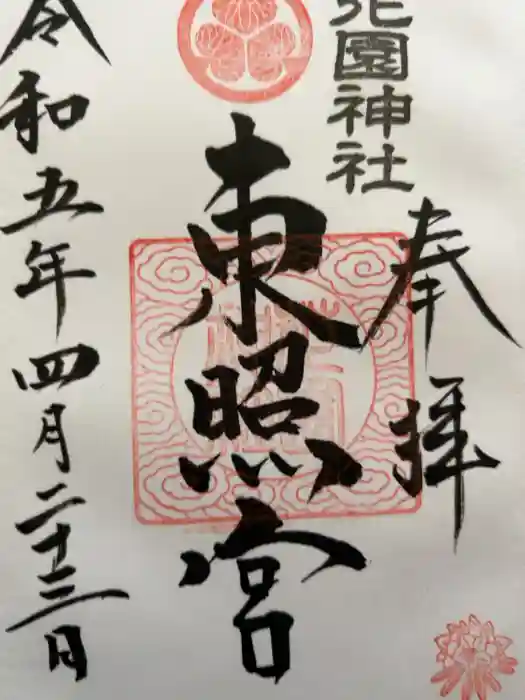 花園神社
奉拝
東照宮
令和五年四月二十三日